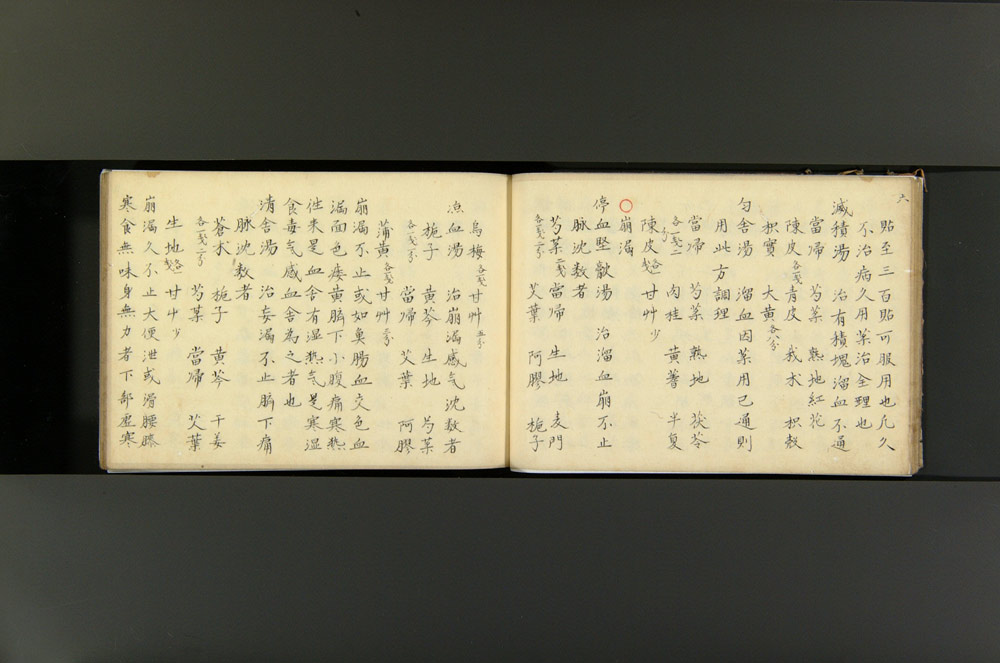 六
貼至三百貼可服用也凡久
不治病久用某治全理也
滅積湯 治有積塊溜血不通
當帰 芍薬 熟地 紅花
陳皮各一戔 青皮 莪朮 枳殻
枳實 大黄各八分
勻舎湯 溜血因薬用已通則
用此方調理
當帰 芍薬 熟地 茯苓
各一戔二分 肉桂 黄蓍 半夏
陳皮各一戔 甘艸少
○崩漏
停血堅歛湯 治溜血崩不止
脉沈数者
芍薬二戔 當帰 生地 麦門
各一戔二分 艾葉 阿膠 梔子
烏梅各一戔 甘艸五分
凉血湯 治崩漏感气沈数者
梔子 黄芩 生地 芍薬
各一戔二分 當帰 艾葉 阿膠
蒲黄各一戔 甘艸三分
崩漏不止或如臭腸血交色血
漏面色痿黄臍下小腹痛寒熱
徃来是血舎有湿熱气是寒湿
食毒气感血舎為之者也
清舎湯 治妄漏不止臍下痛
脉沈数者
蒼朮 梔子 黄芩 干姜
各一戔二分 芍薬 當帰 艾葉
生地各一戔 甘艸少
崩漏久不止大便泄或滑腰膝
寒食無味身無力者下部虚寒